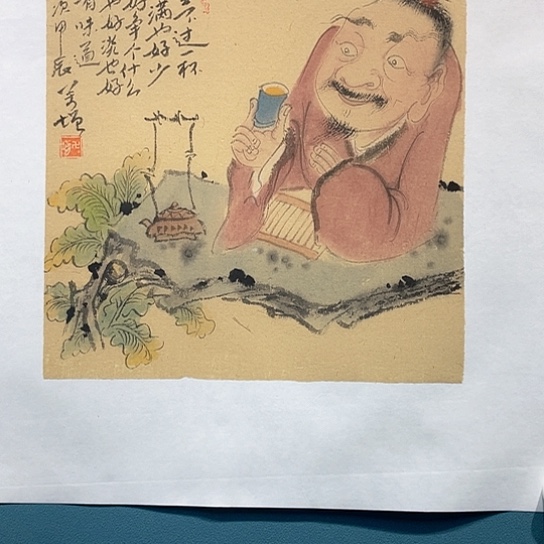 不过一杯
满也好少
好争个什么
也好淡也好
有味道
次甲辰